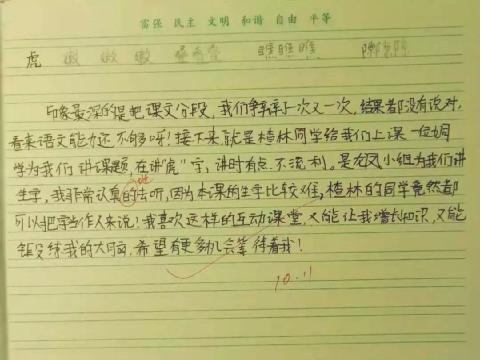 富强 民主 文明 和谐 自由 平等
虎
印象最深的是把课文分段，我们解释了一次又一次，结果都没有说对，
看来语文能力还不够呀！接下来就是楂林同学给我们上课一位姆
学为我们讲课题，在讲"虎"字，讲时有点不流利。是龙凤小组为我们讲
生字，我非常认真的去听，因为本课的生字比较难，楂林的同学竟然都
可以把字当作人来说！我喜欢这样的互动课堂，又能让我增长知识，又能
锻练我的大脑，希望有更多机会等待着我！
10.11